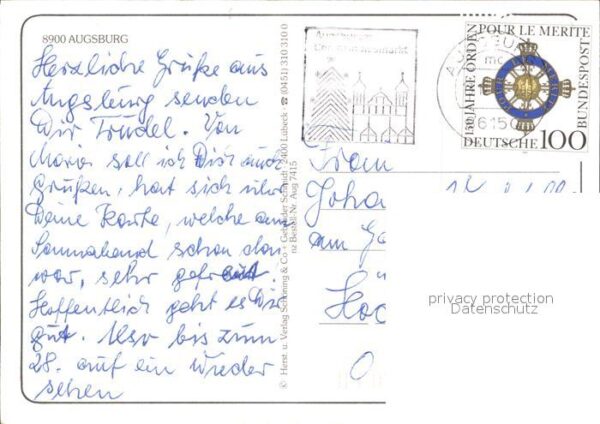 8900 AUGSBURG
Herzliche Grüße aus
Augsburg senden
Dir Trudel. Von
Maria soll ich Dich auch
grüßen, hat sich über
Deine Karte, welche am
Sonnabend schon da
war, sehr gefreut.
Hoffentlich geht es Dir
gut. Also bis zum
28. auf ein Wieder
sehen
© Herst. u. Verlag Schöning & Co · Gebrüder Schmidt · 2400 Lübeck ☎ (0451) 310 310 0
nz Bestell-Nr. Aug 7415
Augsburger
Christkindlesmarkt
150 JAHRE ORDEN
POUR LE MERITE
BUNDESPOST
DEUTSCHE 100
6150
Frau
Joha
am
Hoc
privacy protection
Datenschutz